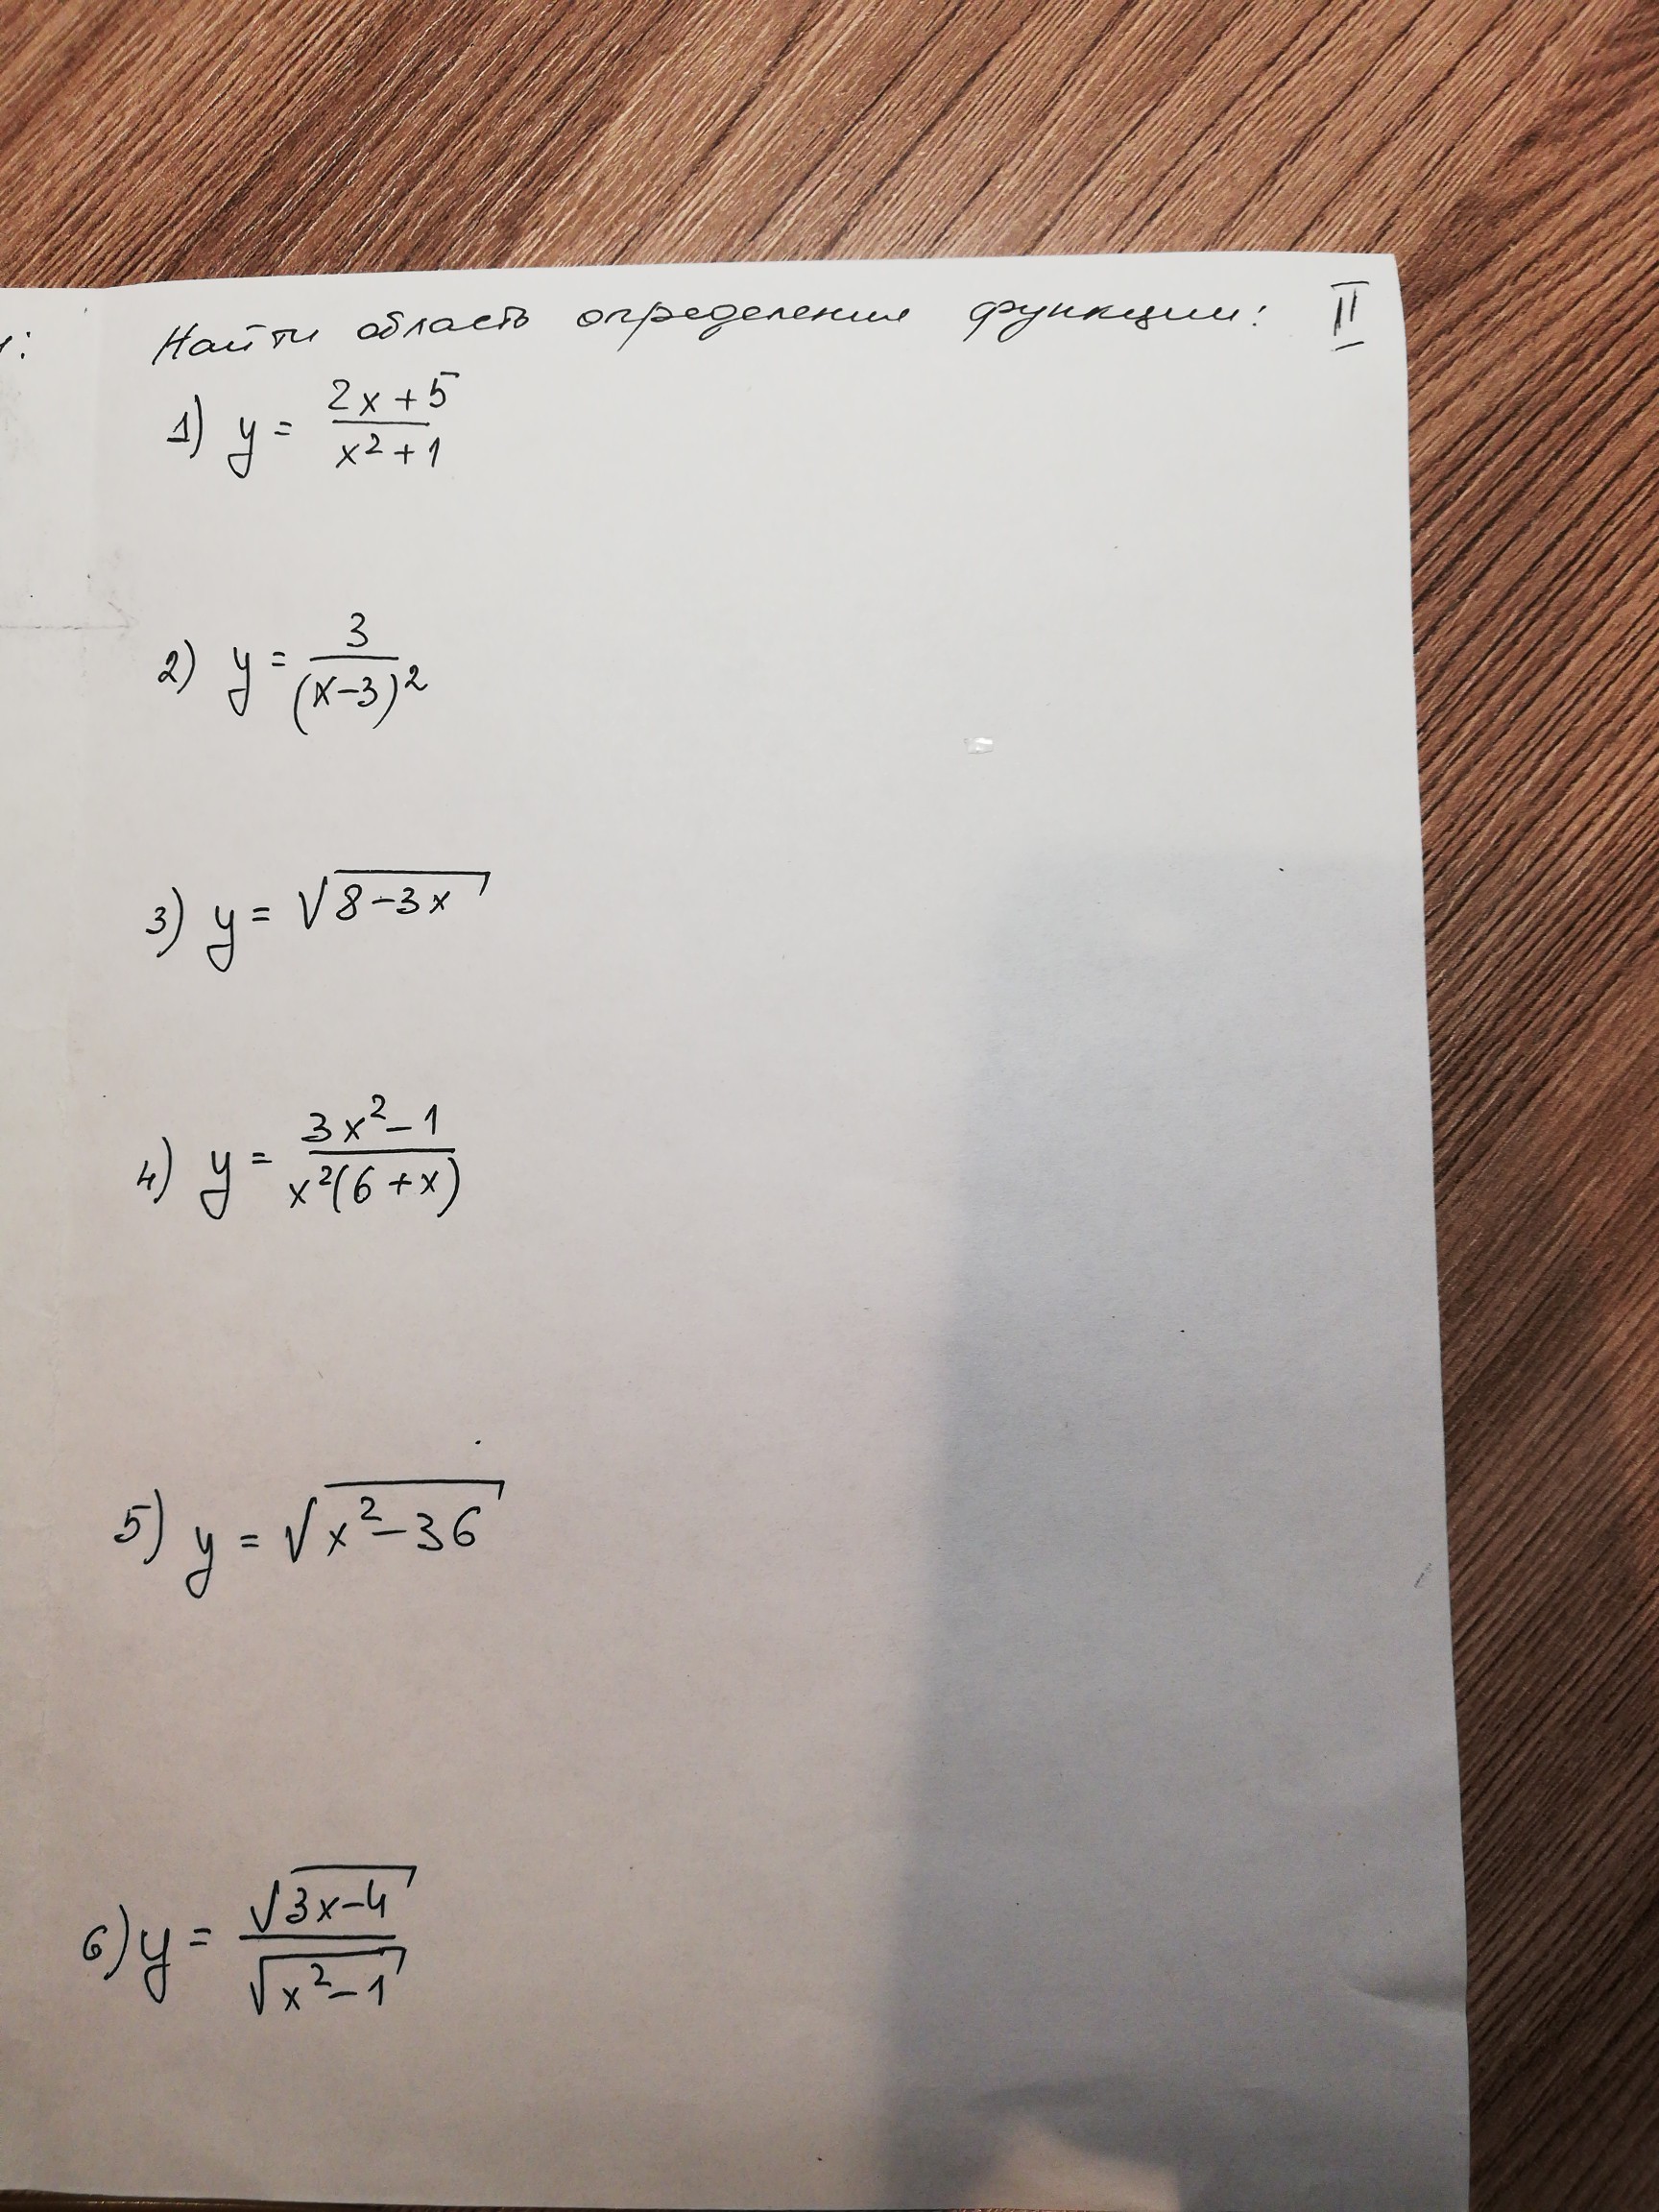 и:
Найти область определения функции: II
1) y = (2x+5)/(x²+1)
2) y = 3/(x-3)²
3) y = √(8-3x)
4) y = (3x²-1)/(x²(6+x))
5) y = √(x²-36)
6) y = √(3x-4)/√(x²-1)